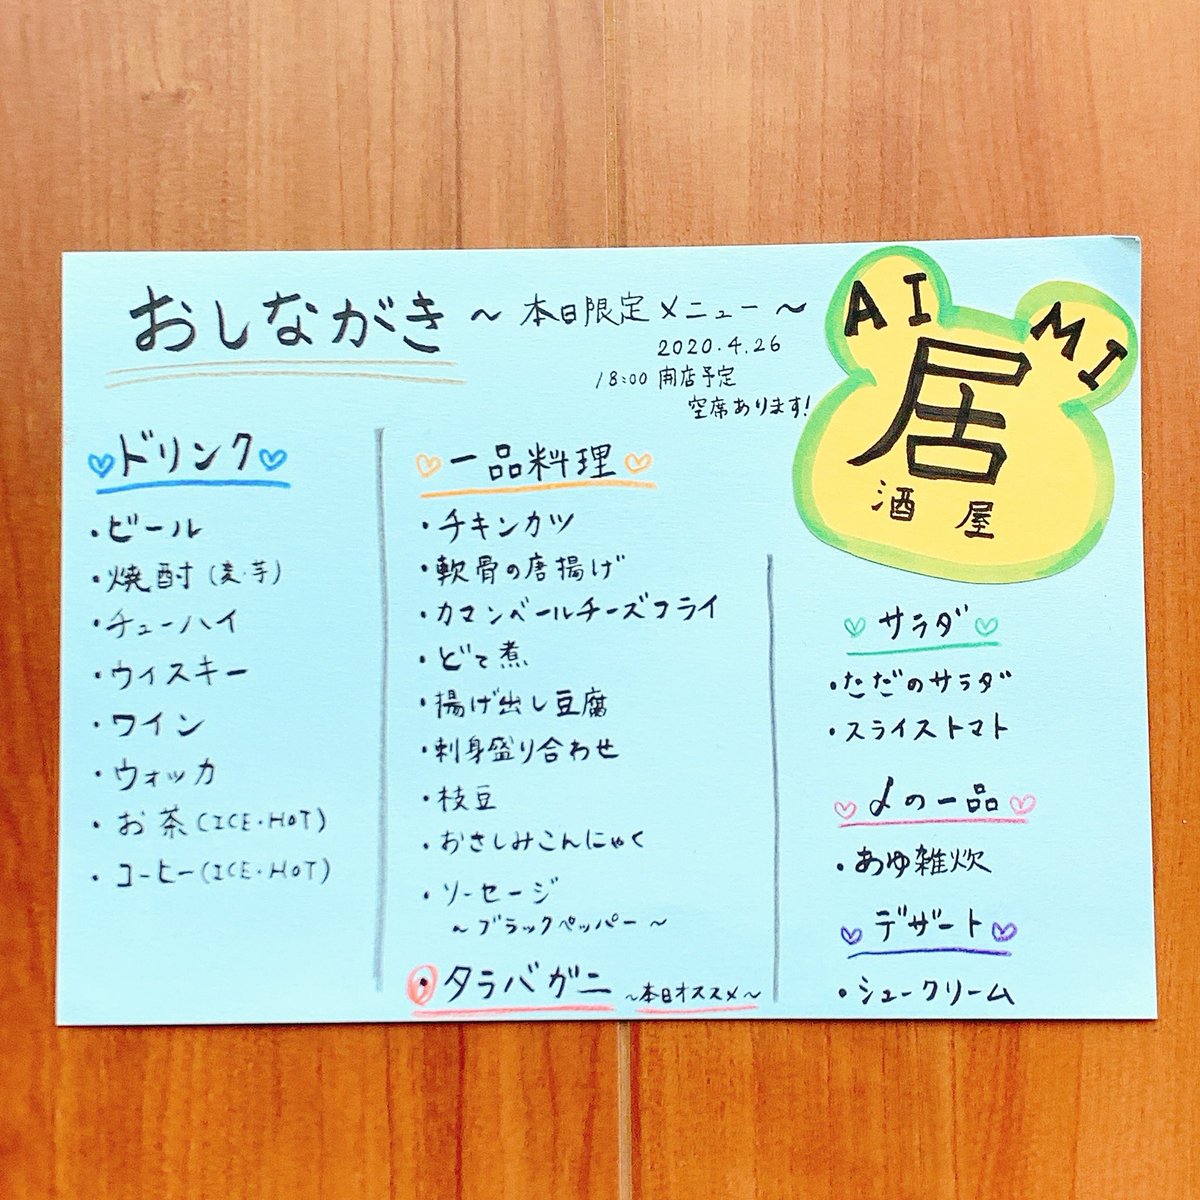 おしながき ～ 本日限定メニュー ～
2020.4.26
18:00 開店予定
空席あります!
AI MI
居
酒屋
ドリンク
・ビール
・焼酎(麦・芋)
・チューハイ
・ウィスキー
・ワイン
・ウォッカ
・お茶(ICE・HOT)
・コーヒー(ICE・HOT)
一品料理
・チキンカツ
・軟骨の唐揚げ
・カマンベールチーズフライ
・どて煮
・揚げ出し豆腐
・刺身盛り合わせ
・枝豆
・おさしみこんにゃく
・ソーセージ
～ブラックペッパー～
・タラバガニ ～本日オススメ～
サラダ
・ただのサラダ
・スライストマト
〆の一品
・あゆ雑炊
デザート
・シュークリーム